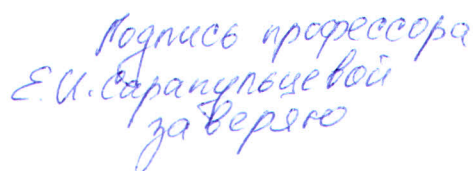 Подпись профессора
Е.И. Сарапульцевой
заверяю